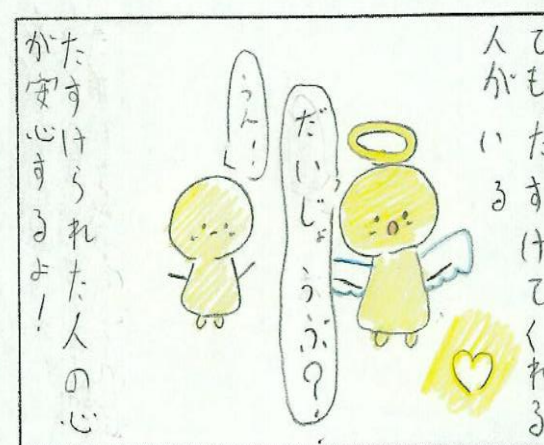 でもたすけてくれる
人がいる
だいじょうぶ?
うん!
たすけられた人の心
が安心するよ!